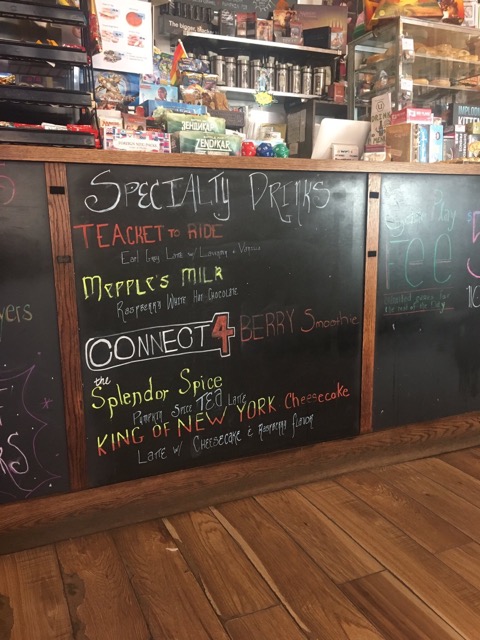 SPECIALTY DRINKS
TEACKET TO RIDE
Earl Grey Latte w/ Lavender + Vanilla
MEPPLE'S MILK
RASPBERRY WHITE HOT CHOCOLATE
CONNECT 4 BERRY Smoothie
the
Splendor Spice
Pumpkin Spice TEA Latte
KING OF NEW YORK Cheesecake
LATTE w/ CHEESECAKE & RASPBERRY FLAVOR
Game Play
FEE
yers
ZENDIKAR
ZENDIKAR
ZENDIKAR
The bigger